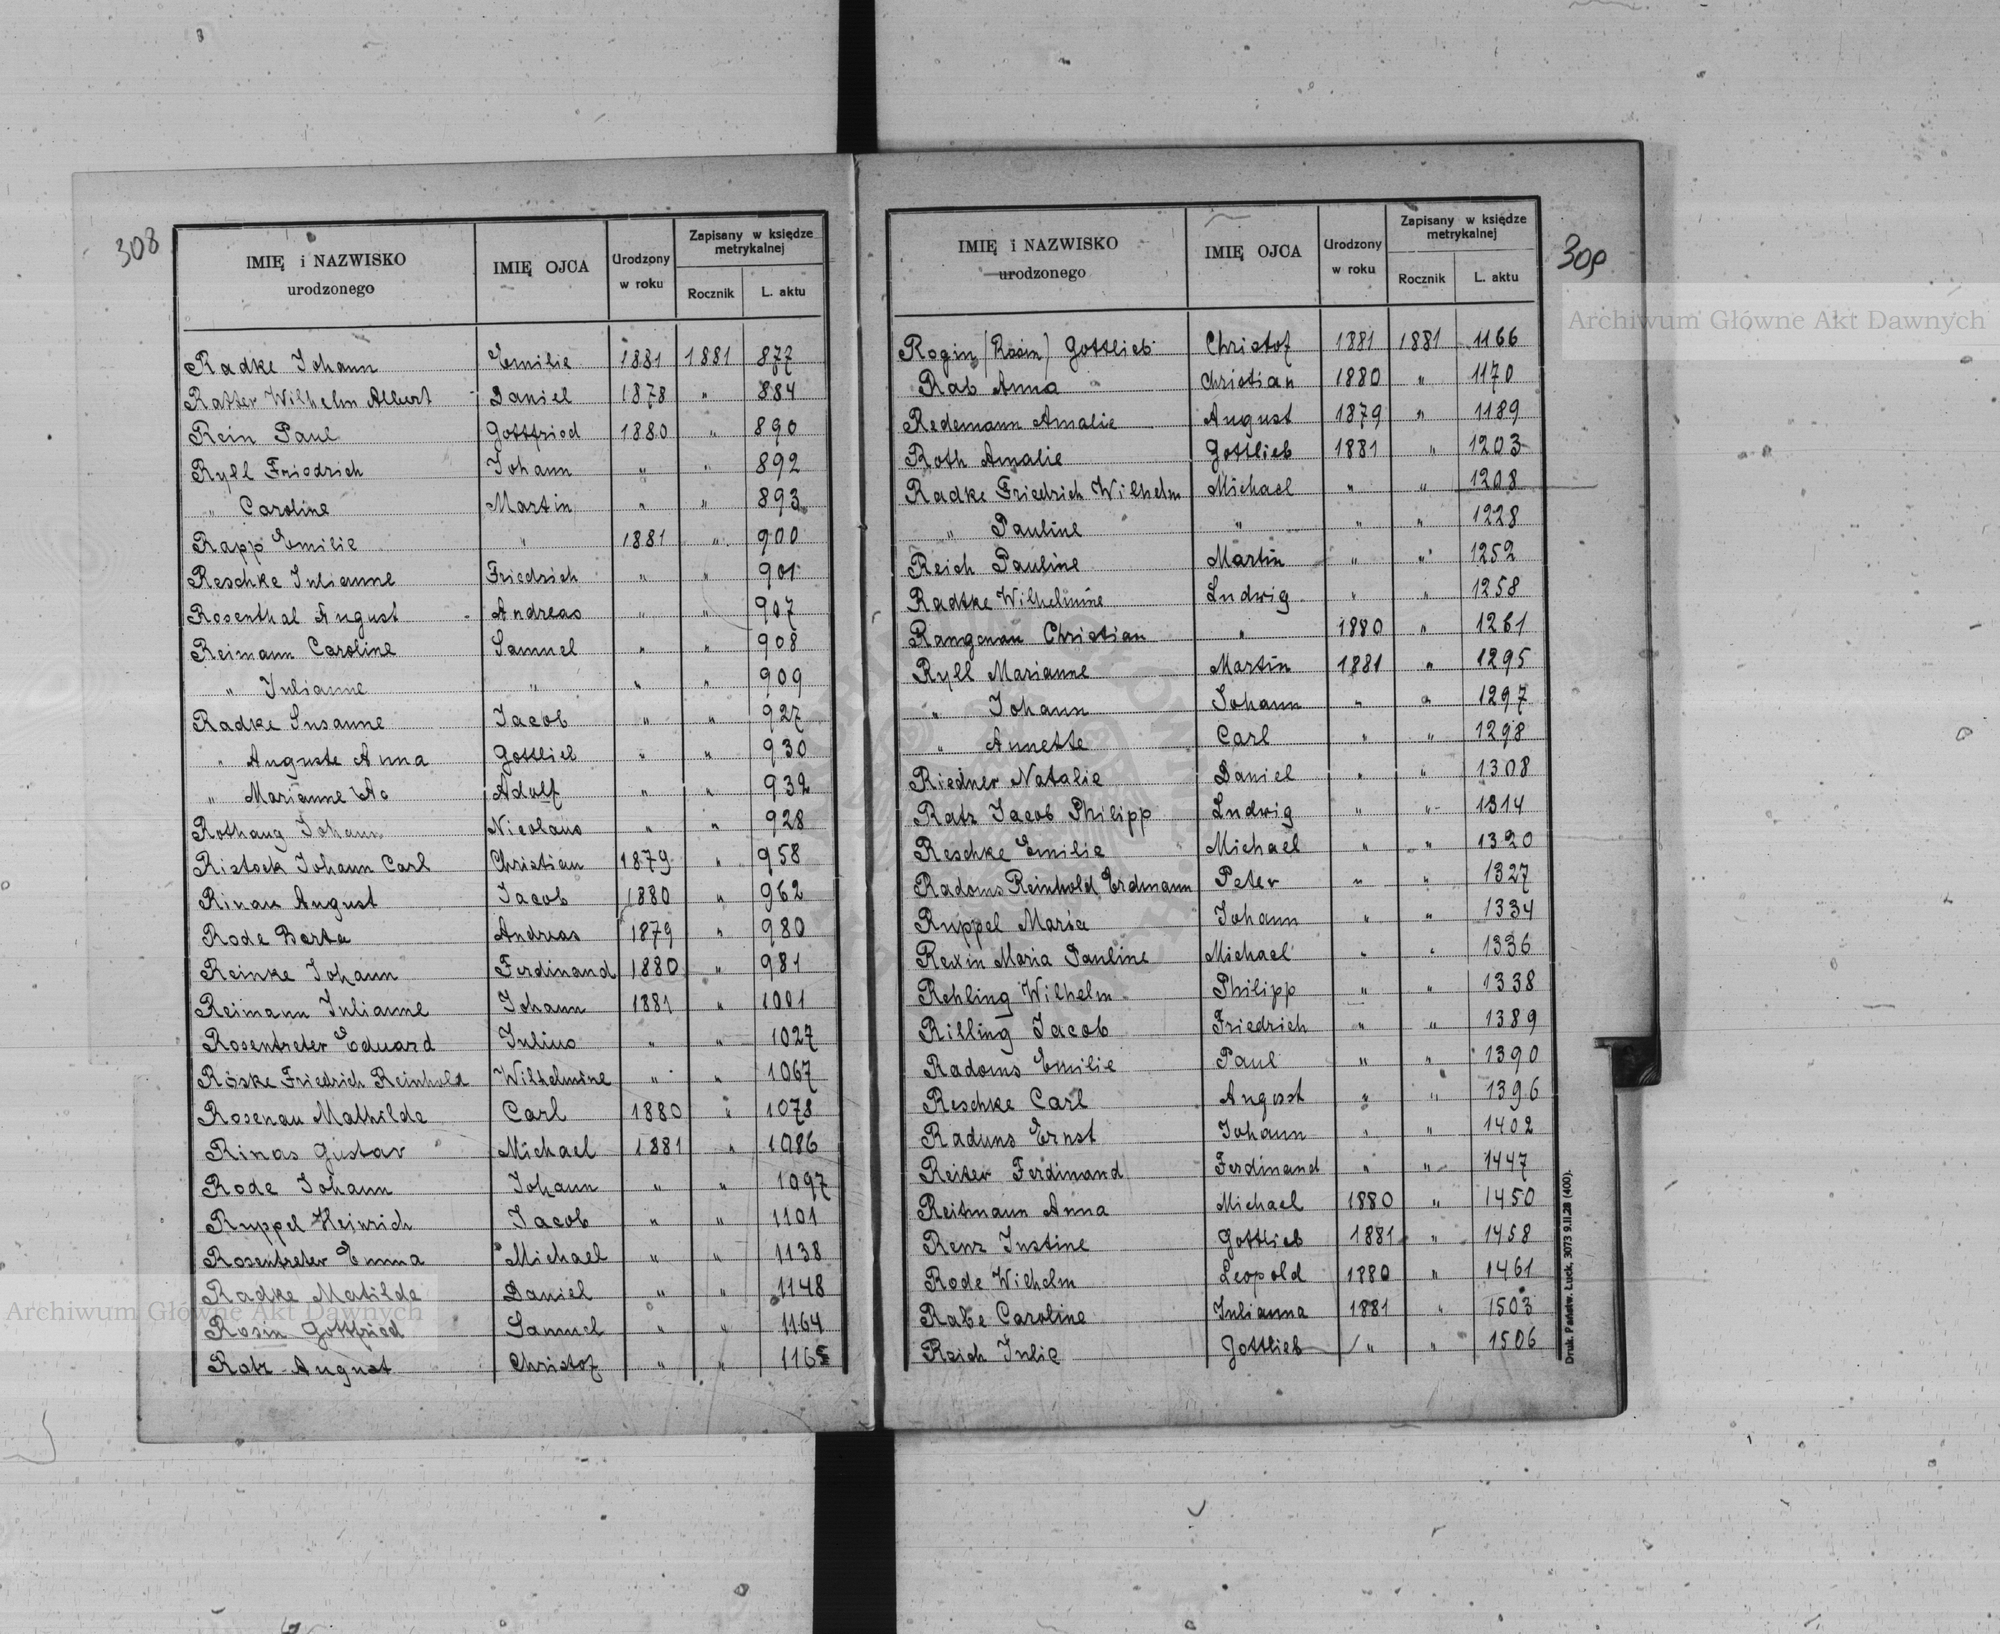 308
IMIĘ i NAZWISKO urodzonego IMIĘ OJCA Urodzony w roku Zapisany w księdze metrykalnej Rocznik L. aktu
Radke Johann Emilie 1881 1881 877
Ratter Wilhelm Albert Daniel 1878 " 884
Rein Paul Gottfried 1880 " 890
Ryll Friedrich Johann " " 892
" Caroline Martin " " 893
Rapp Emilie " 1881 " 900
Reschke Julianne Friedrich " " 901
Rosenthal August Andreas " " 907
Reimann Caroline Samuel " " 908
" Julianne " " " 909
Radke Susanne Jacob " " 927
" Auguste Anna Gottlieb " " 930
" Marianne Adolf " " 932
Rothaug Johann Nicolaus " " 928
Ristock Johann Carl Christian 1879 " 958
Rinau August Jacob 1880 " 962
Rode Berta Andreas 1879 " 980
Reinke Johann Ferdinand 1880 " 981
Reimann Julianne Johann 1881 " 1001
Rosentreter Eduard Julius " " 1027
Röske Friedrich Reinhold Wilhelmine " " 1067
Rosenau Mathilde Carl 1880 " 1078
Rinas Gustav Michael 1881 " 1086
Rode Johann Johann " " 1097
Ruppel Heinrich Jacob " " 1101
Rosentreter Emma Michael " " 1138
Radke Matilde Daniel " " 1148
Rosin Gottfried Samuel " " 1164
Ratz August Christof " " 1165
309
IMIĘ i NAZWISKO urodzonego IMIĘ OJCA Urodzony w roku Zapisany w księdze metrykalnej Rocznik L. aktu
Rogin (Rosin) Gottlieb Christof 1881 1881 1166
Rab Anna Christian 1880 " 1170
Redemann Amalie August 1879 " 1189
Roth Amalie Gottlieb 1881 " 1203
Radke Friedrich Wilhelm Michael " " 1208
" Pauline " " " 1228
Reich Pauline Martin " " 1252
Radtke Wilhelmine Ludwig " " 1258
Rangenau Christian " 1880 " 1261
Ryll Marianne Martin 1881 " 1295
" Johann Johann " " 1297
" Annette Carl " " 1298
Riedner Natalie Daniel " " 1308
Ratz Jacob Philipp Ludwig " " 1314
Reschke Emilie Michael " " 1320
Radoms Reinhold Erdmann Peter " " 1327
Ruppel Maria Johann " " 1334
Rexin Maria Pauline Michael " " 1336
Rehling Wilhelm Philipp " " 1338
Rilling Jacob Friedrich " " 1389
Radoms Emilie Paul " " 1390
Reschke Carl August " " 1396
Raduns Ernst Johann " " 1402
Reiter Ferdinand Ferdinand " " 1447
Reitmann Anna Michael 1880 " 1450
Renz Justine Gottlieb 1881 " 1458
Rode Wilhelm Leopold 1880 " 1461
Rabe Caroline Julianna 1881 " 1503
Reich Julie Gottlieb " " 1506
Druk. Państw. Łuck. 3073 9.II.28 (400).
Archiwum Główne Akt Dawnych
Archiwum Główne Akt Dawnych